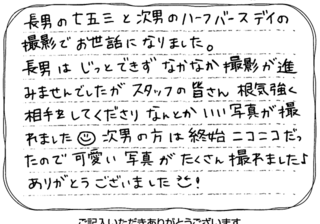 長男の七五三と次男のハーフバースデイの
撮影でお世話になりました。
長男はじっとできずなかなか撮影が進
みませんでしたがスタッフの皆さん根気強く
相手をしてくださりなんとかいい写真が撮
れました 次男の方は終始ニコニコだっ
たので可愛い写真がたくさん撮れました♪
ありがとうございました!
ご記入いただきありがとうございます